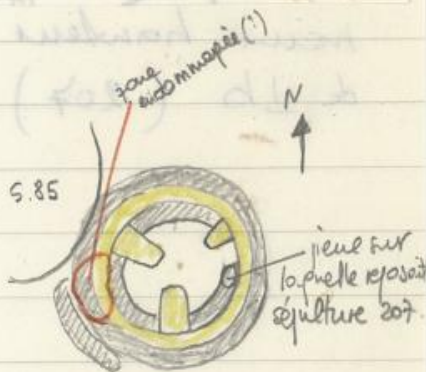 zone
endommagée (!)
N
S.85
pierre sur
laquelle reposait
sépulture 207.